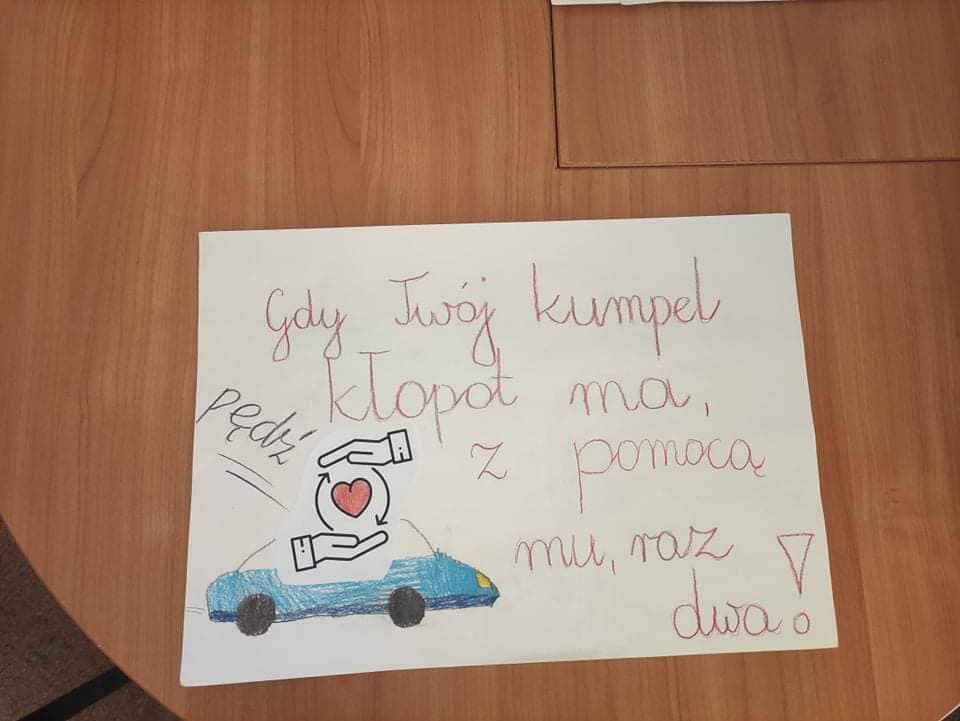 Gdy Twój kumpel
kłopot ma,
pędź
z pomocą
mu, raz
dwa!